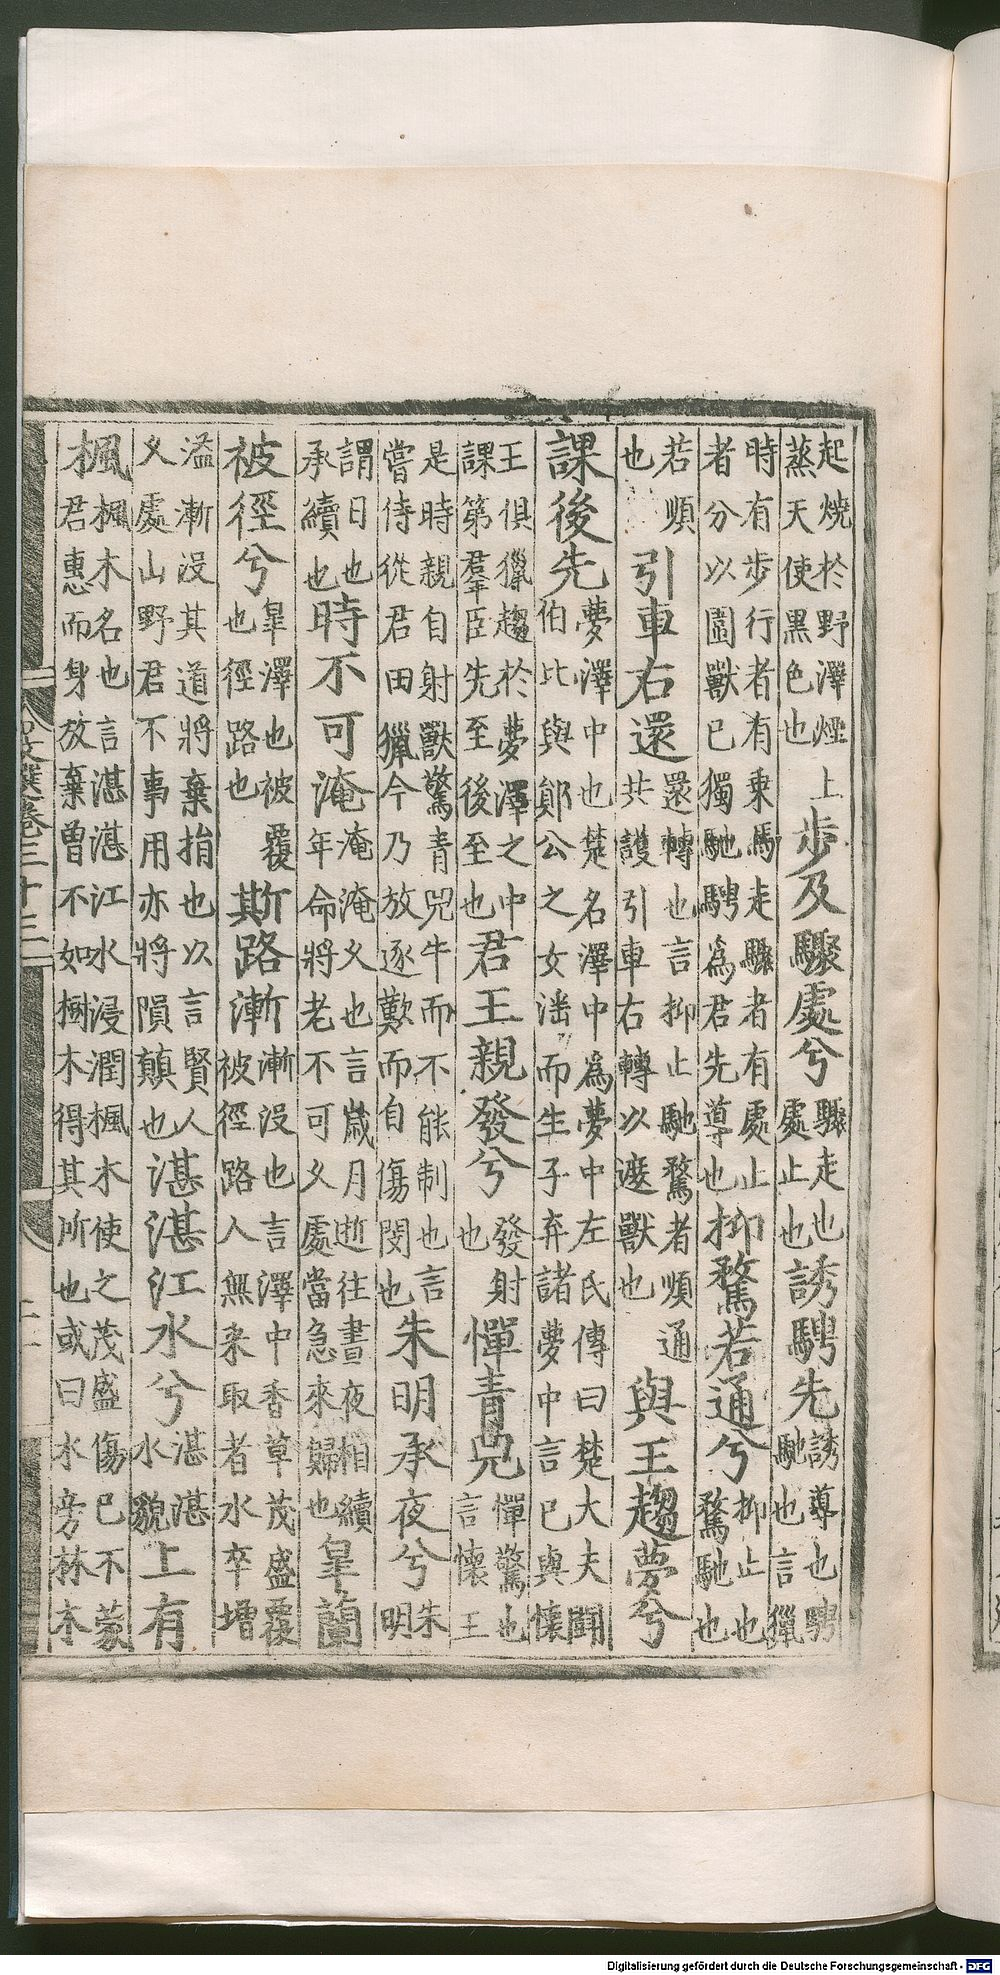 起燒於野澤煙上蒸天使黒色也步及驟處兮驟走也處止也誘騁先誘導也騁馳也言獵
時有步行者有乘馬走驟者有處止者分以圍獸已獨馳騁為君先導也抑騖若通兮抑止也騖馳也
若順也引車右還還轉也言抑止馳騖者順通共護引車右轉以遮獸也與王趨夢兮
課後先夢澤中也楚名澤中為夢中左氏傳曰楚大夫鬭伯比與鄖公之女潘而生子弃諸夢中言已與懷
王俱獵趨於夢澤之中課第羣臣先至後至也君王親發兮發射也憚青兕憚驚也言懷王
是時親自射獸驚青兕牛而不能制也言嘗侍從君田獵今乃放逐歎而自傷閔也朱明承夜兮朱明
謂日也承續也時不可淹淹淹乆也言歲月逝往晝夜相續年命將老不可乆處當急來歸也皐蘭
被徑兮皐澤也被覆也徑路也斯路漸漸没也言澤中香草茂盛覆被徑路人無来取者水卒增
溢漸没其道將棄捐也以言賢人乆處山野君不事用亦將隕顛也湛湛江水兮湛湛水貌上有
楓楓木名也言湛湛江水浸潤楓木使之茂盛傷已不蒙君惠而身放棄曽不如樹木得其所也或曰水旁林木
文選卷三十三
Digitalisierung gefördert durch die Deutsche Forschungsgemeinschaft - DFG